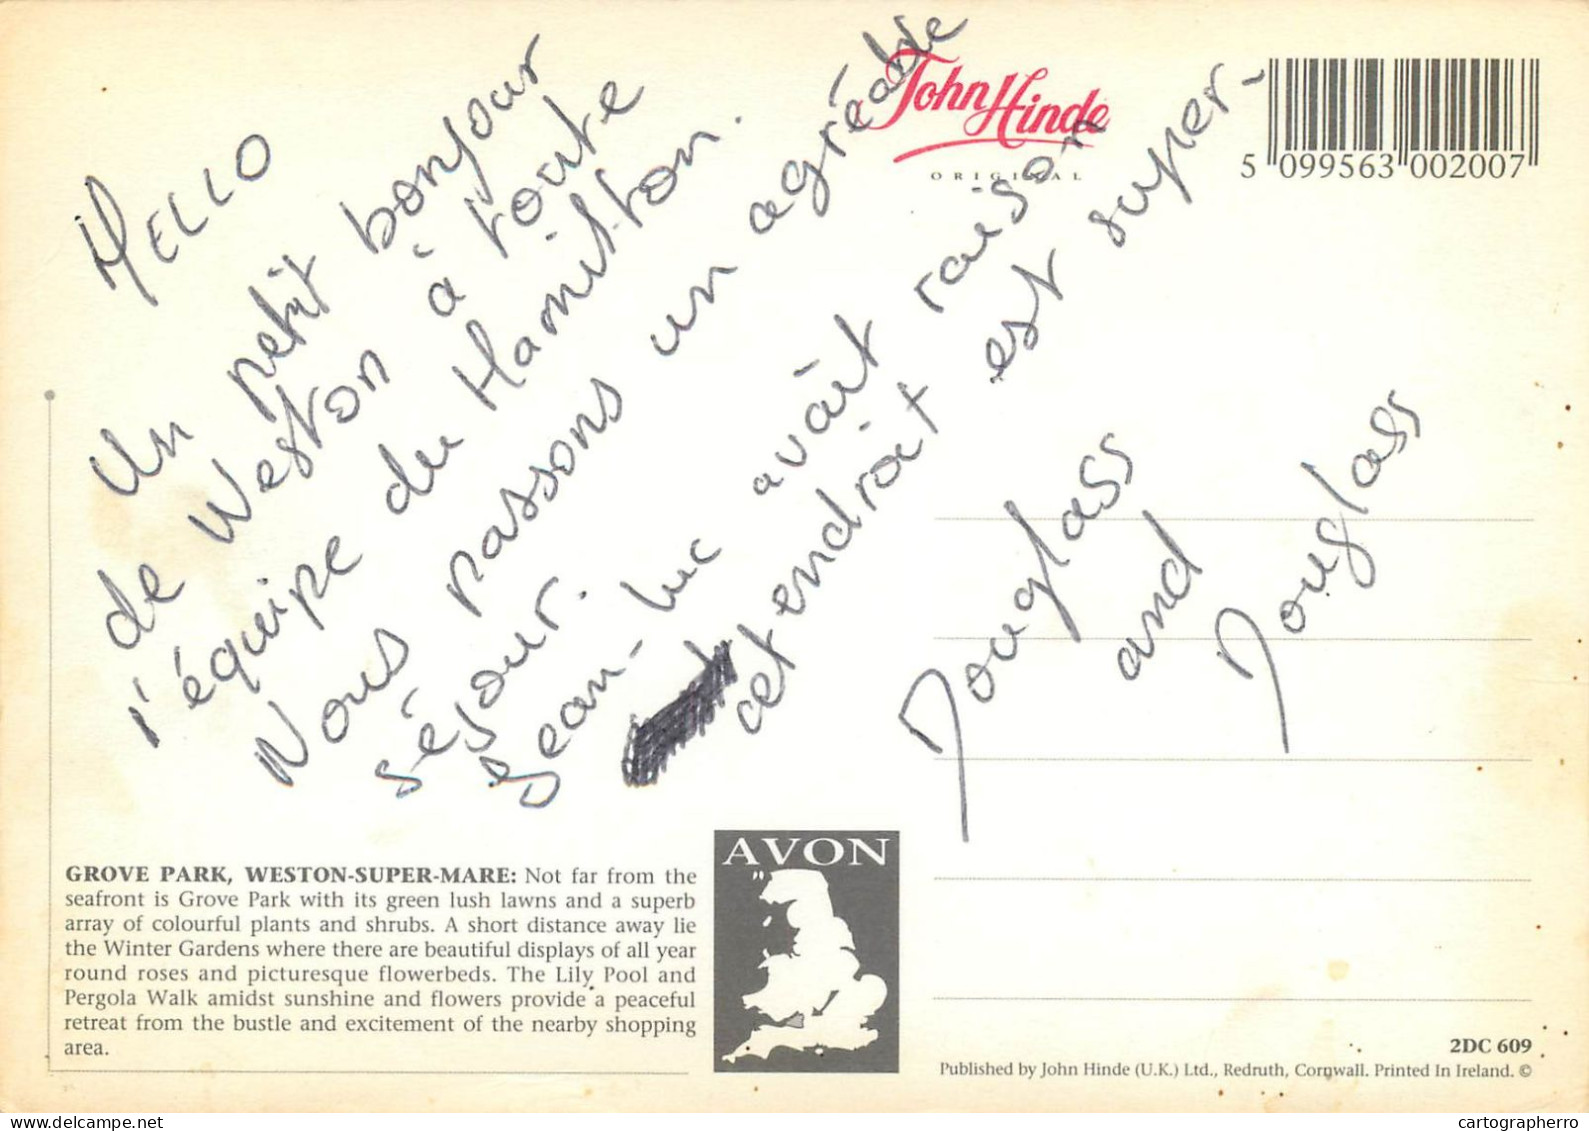 HELLO
Un petit bonjour
de Weston à toute
l'équipe du Hamilton.
Nous passons un agréable
séjour.
Jean-Luc avait raison
cet endroit est super-
Douglass
and
Douglass
John Hinde
ORIGINAL
5 099563 002007
GROVE PARK, WESTON-SUPER-MARE: Not far from the
seafront is Grove Park with its green lush lawns and a superb
array of colourful plants and shrubs. A short distance away lie
the Winter Gardens where there are beautiful displays of all year
round roses and picturesque flowerbeds. The Lily Pool and
Pergola Walk amidst sunshine and flowers provide a peaceful
retreat from the bustle and excitement of the nearby shopping
area.
AVON
2DC 609
Published by John Hinde (U.K.) Ltd., Redruth, Cornwall. Printed In Ireland. ©
cartographerro